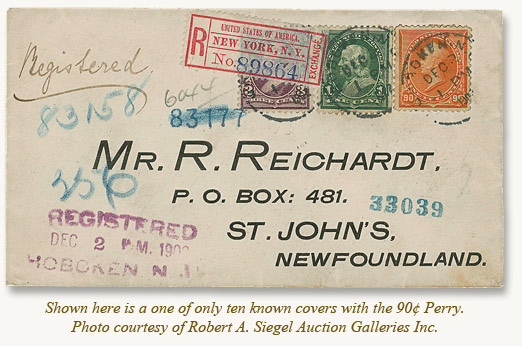 Registered
R
UNITED STATES OF AMERICA.
NEW YORK, N.Y.
EXCHANGE.
No. 89864
83158
6044
83177
3
1
ONE CENT
90
90
DEC
MR. R. REICHARDT,
P. O. BOX: 481.
33039
ST. JOHN'S,
NEWFOUNDLAND.
REGISTERED
DEC. 2 P.M.
HOBOKEN N.J.
Shown here is a one of only ten known covers with the 90¢ Perry.
Photo courtesy of Robert A. Siegel Auction Galleries Inc.